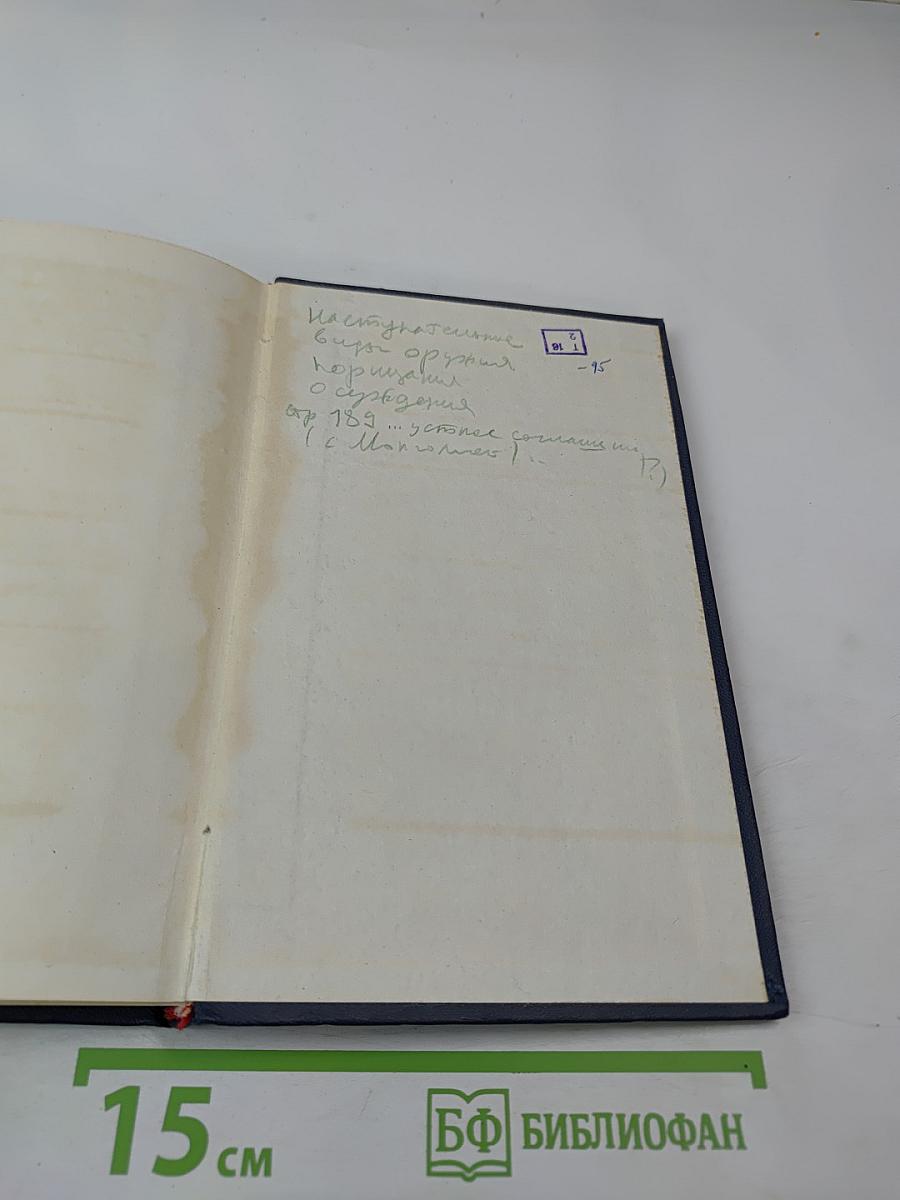 Наступательные
виды оружия
порицания
осуждения
стр 189 ... устное соглашение
(с Монголией) .. (?)
Т 16
2
-95
15 см
БФ БИБЛИОФАН